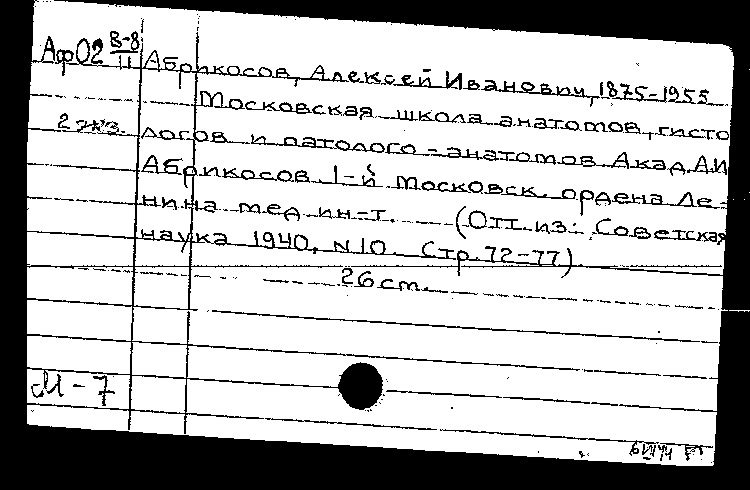 АфО2 В-8/II Абрикосов, Алексей Иванович, 1875-1955
Московская школа анатомов, гисто
2 экз. логов и патолого-анатомов. Акад. А.И
Абрикосов. 1-й Московск. ордена Ле-
нина мед. ин-т. (Отт. из: Советская
наука 1940, N 10. Стр. 72-77).
26 cm.
М-7